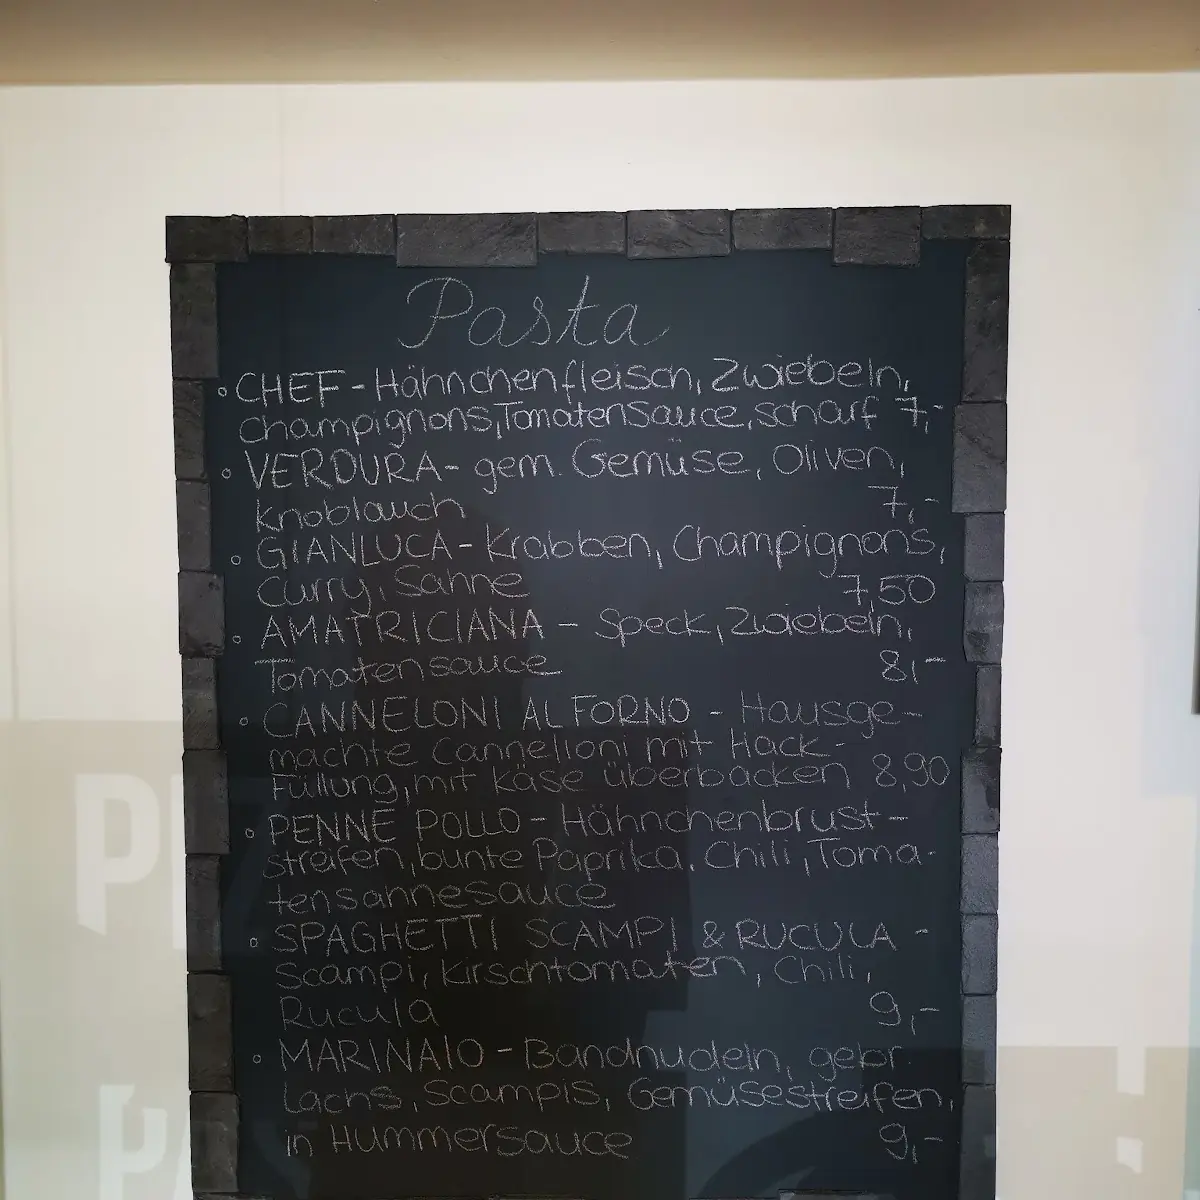 Pasta
CHEF - Hähnchenfleisch, Zwiebeln,
Champignons, Tomatensauce, scharf 7,-
VERDURA - gem. Gemüse, Oliven,
Knoblauch 7,-
GIANLUCA - Krabben, Champignons,
Curry, Sahne 7,50
AMATRICIANA - Speck, Zwiebeln,
Tomatensauce 8,-
CANNELONI AL FORNO - Hausge-
machte Cannelloni mit Hack-
Füllung, mit Käse überbacken 8,90
PENNE POLLO - Hähnchenbrust-
streifen, bunte Paprika, Chili, Toma-
tensahnesauce
SPAGHETTI SCAMPI & RUCULA -
Scampi, Kirschtomaten, Chili,
Rucula 9,-
MARINAIO - Bandnudeln, gebr.
Lachs, Scampis, Gemüsestreifen,
in Hummersauce 9,-